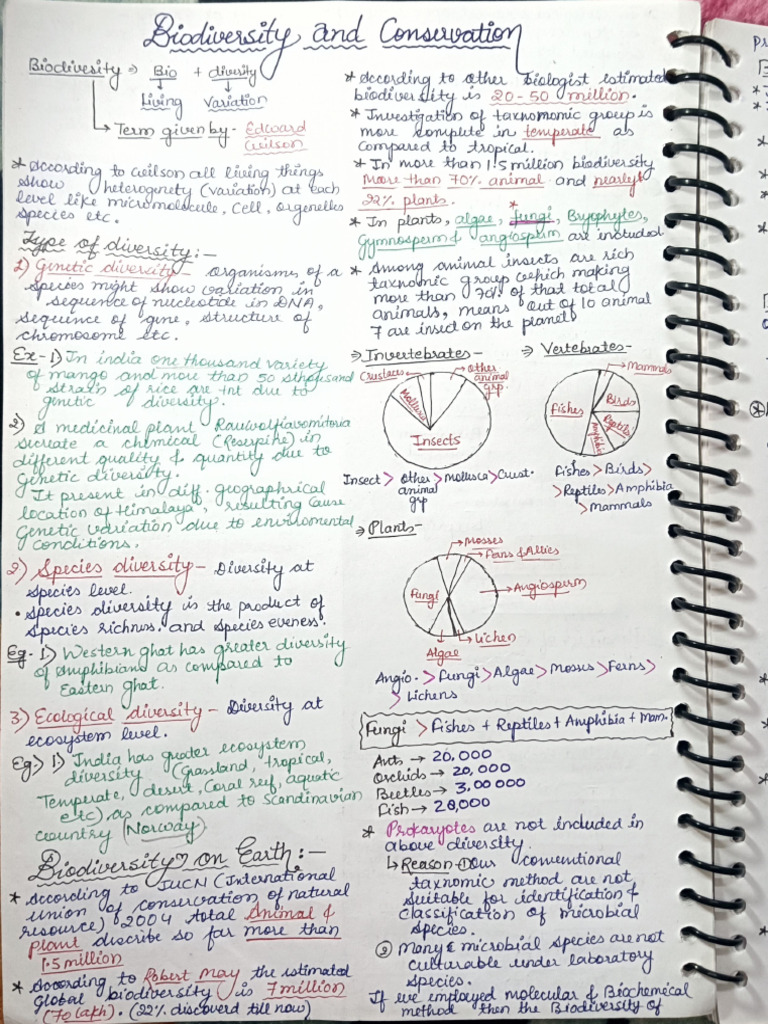 Biodiversity and Conservation
Biodivesity → Bio + divesity
Living Variation
Term given by - Edward
Wilson
* According to wilson all living things
show heterogenety (variation) at each
level like micromolecule, Cell, organelles
species etc.
Type of diversity:-
1) Genetic diversity - organisms of a
species might show variation in
sequence of nucleotide in DNA,
sequence of gene, structure of
chromosome etc.
Ex- 1) In india one thousand variety
of mango and more than 50 thousand
strain of rice are +nt due to
genetic diversity.
2) A medicinal plant Rauwolfiavomitoria
sicreate a chemical (Reserpine) in
different quality & quantity due to
Genetic diversity.
It present in diff. geographrical
location of Himalaya, resulting cause
Genetic variation due to enviromental
conditions.
2) Species diversity - Diversity at
species level.
• Species diversity is the product of
species richness. and species eveness.
Eg- 1) Western ghat has greater diversity
of Amphibians as compared to
Eastern ghat.
3) Ecological diversity - Diversity at
ecosystem level.
Eg:) 1) India has greater ecosystem
diversity (Grassland, tropical,
Temperate, desert, Coral reef, aquatic
etc) as compared to Scandinavian
country (Norway)
Biodiversity on Earth:-
* According to IUCN (International
union of conservation of natural
resource) 2004 total Animal &
plant describe so far more than
1.5 million
* According to Robert May the estimated
Global biodiversity is 7 million
(70 lakh). (22% discoverd till now)
* According to other biologist estimated
biodiversity is 20-50 million.
* Investigation of taxnomomic group is
more complete in temperate as
compared to tropical.
* In more than 1.5 million biodiversity
More than 70% animal and nearly
22% plants.
* In plants, algae, *fungi, Bryophytes,
Gymnosperm & angiosperm are included
* Among animal insects are rich
taxnomic group which making
more than 70% of that total
animals, means out of 10 animal
7 are insect on the planet
⇒ Invertebrates -
Crustaces
other
animal
grp.
Mollusca
Insects
Insect > other > Mollusca > Crust.
animal
grp
⇒ Vertebrates -
Mammals
Fishes
Birds
Reptiles
Amphibia
Fishes > Birds >
> Reptiles > Amphibia
> Mammals
⇒ Plants -
Mosses
Ferns & Allies
Fungi
Angiosperm
Lichen
Algae
Angio. > Fungi > Algae > Mosses > Ferns >
> Lichens
Fungi > Fishes + Reptiles + Amphibia + Mam.
Ants → 20,000
Orchids → 20,000
Beetles → 3,00000
Fish → 28,000
* Prokaryotes are not included in
above diversity.
↳ Reason - ① Our conventional
taxnomic method are not
suitable for identification &
classification of microbial
species.
② Many microbial species are not
culturable under laboratory
species.
If we employed molecular & Biochemical
method then the Biodiversity of